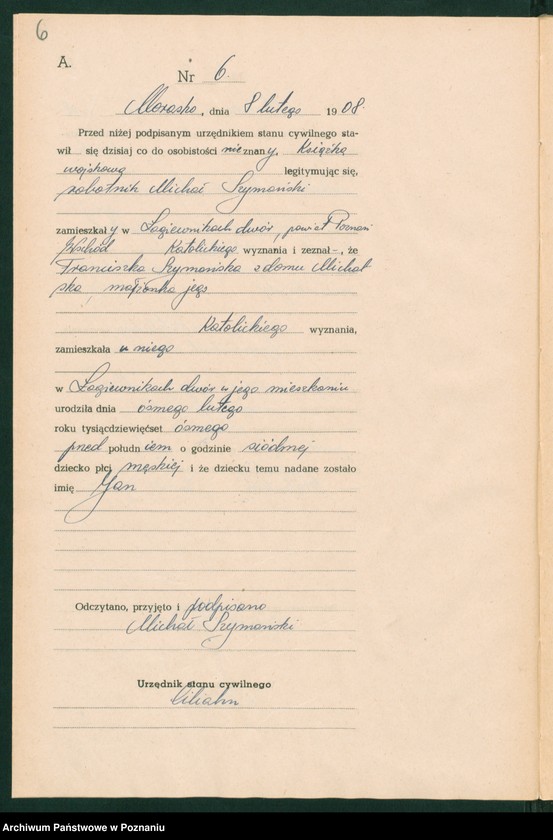 6
A.
Nr 6.
Morasko, dnia 8 lutego 1908.
Przed niżej podpisanym urzędnikiem stanu cywilnego sta-
wił się dzisiaj co do osobistości nieznany, Książką
wojskową legitymując się,
robotnik Michał Szymański
zamieszkały w Łagiewnikach dwór, powiat Poznań
Wschód Katolickiego wyznania i zeznał –, że
Franciszka Szymańska z domu Michal
ska małżonka jego
Katolickiego wyznania,
zamieszkała u niego
w Łagiewnikach dwór w jego mieszkaniu
urodziła dnia ósmego lutego
roku tysiącdziewięćset ósmego
przed południem o godzinie siódmej
dziecko płci męskiej i że dziecku temu nadane zostało
imię Jan
Odczytano, przyjęto i podpisano
Michał Szymański
Urzędnik stanu cywilnego
Archiwum Państwowe w Poznaniu